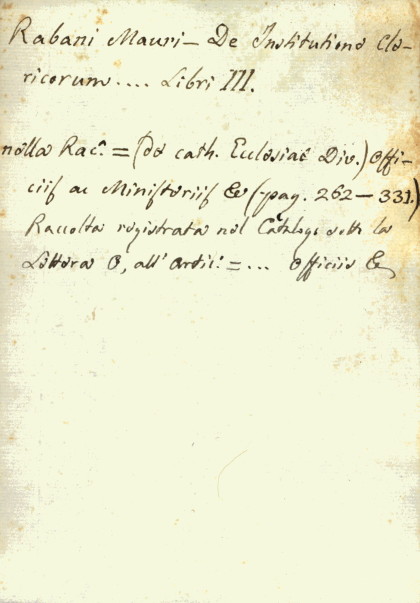 Rabani Mauri - De Institutione Cle-
ricorum .... Libri III.
nella Rac.ª = (De cath. Ecclesiae Div.) Offi-
ciis ac Ministeriis &c (pag. 262 - 331)
Raccolta registrata nel Catalogo sotto la
Lettera O, all' Artic.º = ... Officiis &c